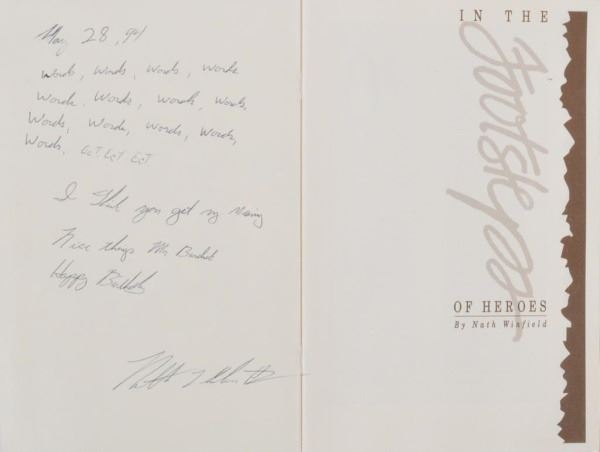 May 28, 94
Words, words, words, words
Words. Words, words, words.
Words, Words, words, words,
Words. Ect. Ect Ect
I Think you get my
Nice things Mr.
Happy Birthday
IN THE
Footsteps
OF HEROES
By Nath Winfield